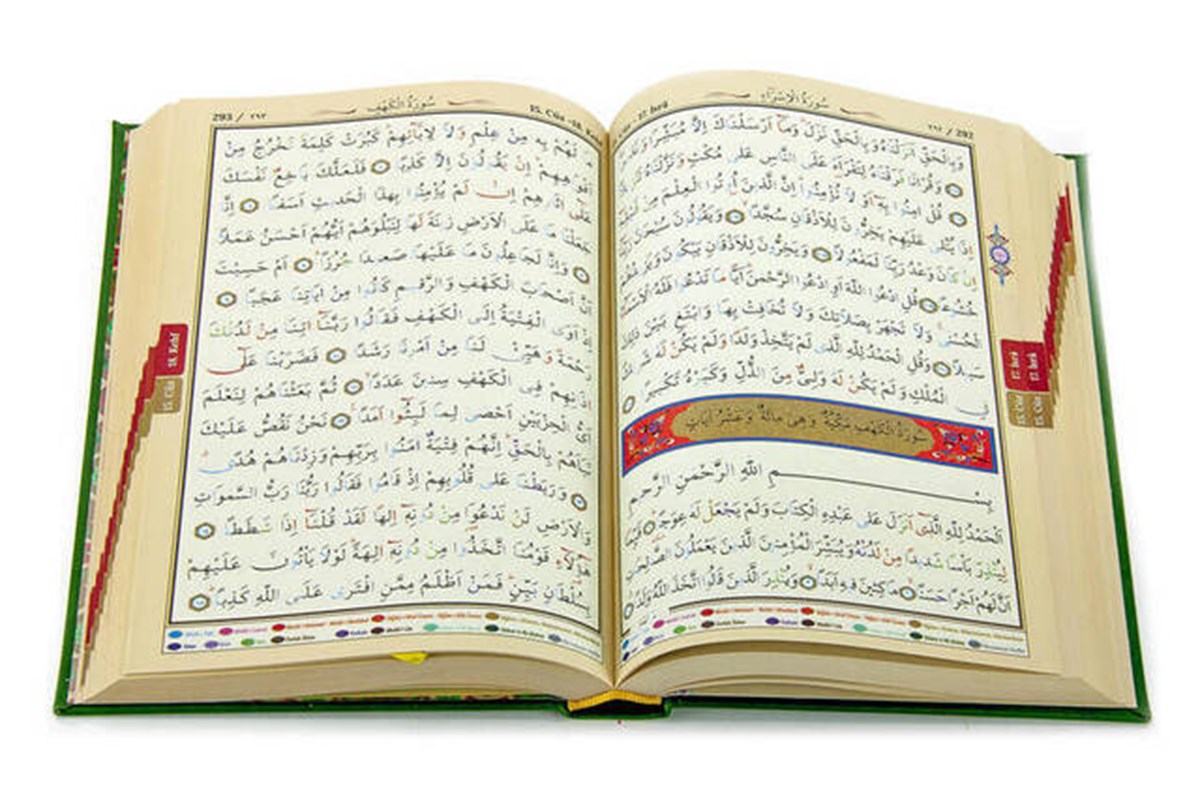 292 / ٢٩٢
سُورَةُ الْإِسْرَاءِ
17. İsrâ
وَبِالْحَقِّ اَنْزَلْنَاهُ وَبِالْحَقِّ نَزَلَ وَمَا اَرْسَلْنَاكَ اِلَّا مُبَشِّرًا
وَقُرْاٰنًا فَرَقْنَاهُ لِتَقْرَاَهُ عَلَى النَّاسِ عَلٰى مُكْثٍ وَنَزَّلْنَاهُ
قُلْ اٰمِنُوا بِه۪ٓ اَوْ لَا تُؤْمِنُوا اِنَّ الَّذ۪ينَ اُو۫تُوا الْعِلْمَ مِنْ
اِذَا يُتْلٰى عَلَيْهِمْ يَخِرُّونَ لِلْاَذْقَانِ سُجَّدًا وَيَقُولُونَ سُبْحَانَ
اِنْ كَانَ وَعْدُ رَبِّنَا لَمَفْعُولًا وَيَخِرُّونَ لِلْاَذْقَانِ يَبْكُونَ وَيَز۪يدُهُمْ
خُشُوعًا قُلِ ادْعُوا اللّٰهَ اَوِ ادْعُوا الرَّحْمٰنَ اَيًّا مَا تَدْعُوا فَلَهُ الْاَسْمَاءُ
الْحُسْنٰى وَلَا تَجْهَرْ بِصَلَاتِكَ وَلَا تُخَافِتْ بِهَا وَابْتَغِ بَيْنَ ذٰلِكَ
سَب۪يلًا وَقُلِ الْحَمْدُ لِلّٰهِ الَّذ۪ي لَمْ يَتَّخِذْ وَلَدًا وَلَمْ يَكُنْ لَهُ شَر۪يكٌ
فِي الْمُلْكِ وَلَمْ يَكُنْ لَهُ وَلِيٌّ مِنَ الذُّلِّ وَكَبِّرْهُ تَكْب۪يرًا
سُورَةُ الْكَهْفِ مَكِّيَّةٌ وَهِيَ مِائَةٌ وَعَشْرُ اٰيَاتٍ
بِسْمِ اللّٰهِ الرَّحْمٰنِ الرَّح۪يمِ
اَلْحَمْدُ لِلّٰهِ الَّذ۪ٓي اَنْزَلَ عَلٰى عَبْدِهِ الْكِتَابَ وَلَمْ يَجْعَلْ لَهُ عِوَجًا قَيِّمًا
لِيُنْذِرَ بَاْسًا شَد۪يدًا مِنْ لَدُنْهُ وَيُبَشِّرَ الْمُؤْمِن۪ينَ الَّذ۪ينَ يَعْمَلُونَ الصَّالِحَاتِ
اَنَّ لَهُمْ اَجْرًا حَسَنًا مَاكِث۪ينَ ف۪يهِ اَبَدًا وَيُنْذِرَ الَّذ۪ينَ قَالُوا اتَّخَذَ اللّٰهُ وَلَدًا
17. İsrâ
17. İsrâ
15. Cüz
15. Cüz
15. Cüz -18. Kehf
سُورَةُ الْكَهْفِ
293 / ٢٩٣
مَا لَهُمْ بِه۪ مِنْ عِلْمٍ وَلَا لِاٰبَائِهِمْ كَبُرَتْ كَلِمَةً تَخْرُجُ مِنْ
اَفْوَاهِهِمْ اِنْ يَقُولُونَ اِلَّا كَذِبًا فَلَعَلَّكَ بَاخِعٌ نَفْسَكَ
عَلٰٓى اٰثَارِهِمْ اِنْ لَمْ يُؤْمِنُوا بِهٰذَا الْحَد۪يثِ اَسَفًا اِنَّا
جَعَلْنَا مَا عَلَى الْاَرْضِ ز۪ينَةً لَهَا لِنَبْلُوَهُمْ اَيُّهُمْ اَحْسَنُ عَمَلًا
وَاِنَّا لَجَاعِلُونَ مَا عَلَيْهَا صَع۪يدًا جُرُزًا اَمْ حَسِبْتَ
اَنَّ اَصْحَابَ الْكَهْفِ وَالرَّق۪يمِ كَانُوا مِنْ اٰيَاتِنَا عَجَبًا
اِذْ اَوَى الْفِتْيَةُ اِلَى الْكَهْفِ فَقَالُوا رَبَّنَا اٰتِنَا مِنْ لَدُنْكَ
رَحْمَةً وَهَيِّئْ لَنَا مِنْ اَمْرِنَا رَشَدًا فَضَرَبْنَا عَلٰٓى
اٰذَانِهِمْ فِي الْكَهْفِ سِن۪ينَ عَدَدًا ثُمَّ بَعَثْنَاهُمْ لِنَعْلَمَ
اَيُّ الْحِزْبَيْنِ اَحْصٰى لِمَا لَبِثُوا اَمَدًا نَحْنُ نَقُصُّ عَلَيْكَ
نَبَاَهُمْ بِالْحَقِّ اِنَّهُمْ فِتْيَةٌ اٰمَنُوا بِرَبِّهِمْ وَزِدْنَاهُمْ هُدًى
وَرَبَطْنَا عَلٰى قُلُوبِهِمْ اِذْ قَامُوا فَقَالُوا رَبُّنَا رَبُّ السَّمٰوَاتِ
وَالْاَرْضِ لَنْ نَدْعُوَا مِنْ دُونِه۪ٓ اِلٰهًا لَقَدْ قُلْنَا اِذًا شَطَطًا
هٰٓؤُلَٓاءِ قَوْمُنَا اتَّخَذُوا مِنْ دُونِه۪ٓ اٰلِهَةً لَوْلَا يَاْتُونَ عَلَيْهِمْ
بِسُلْطَانٍ بَيِّنٍ فَمَنْ اَظْلَمُ مِمَّنِ افْتَرٰى عَلَى اللّٰهِ كَذِبًا
18. Kehf
15. Cüz